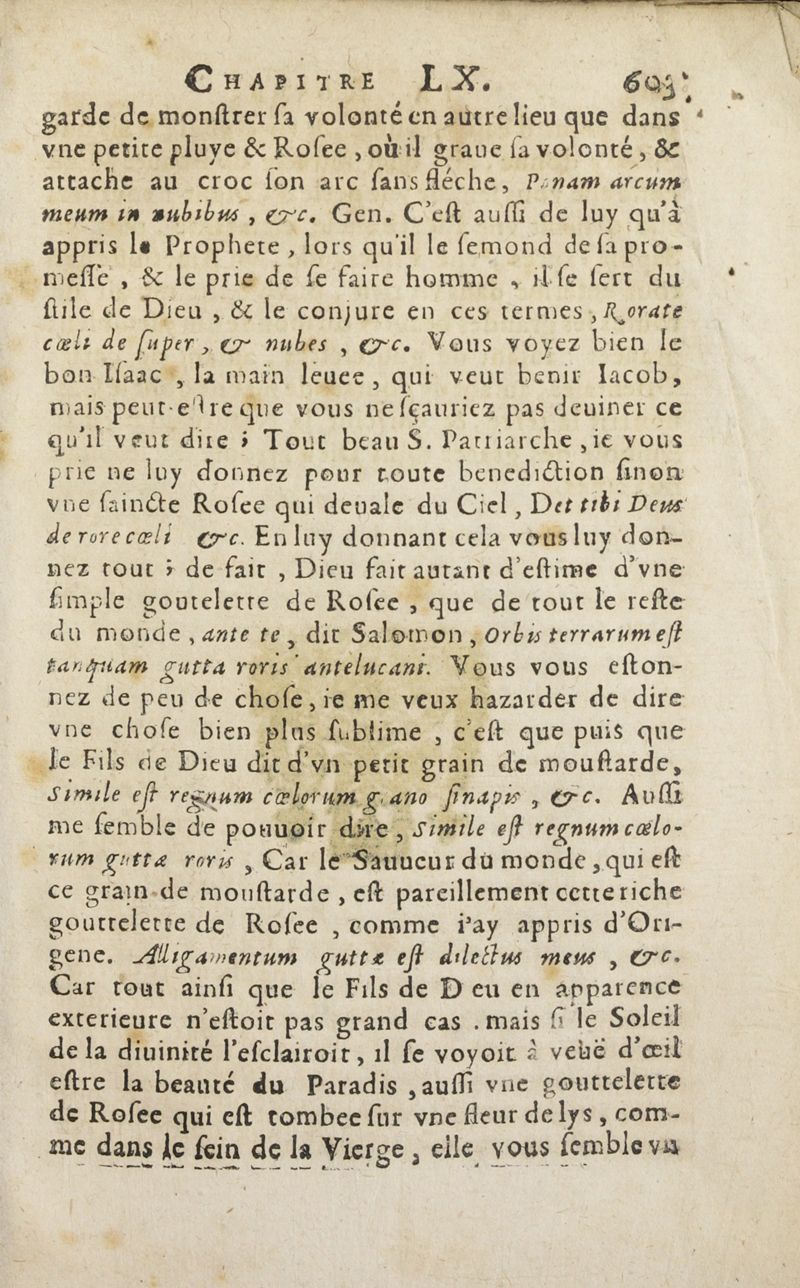 CHAPITRE LX. 603
garde de monſtrer ſa volonté en autre lieu que dans
vne petite pluye & Roſee , où il graue ſa volonté , &
attache au croc ſon arc ſans fléche, Ponam arcum
meum in nubibus , &c. Gen. C'eſt auſſi de luy qu'à
appris le Prophete , lors qu'il le ſemond de ſa pro-
meſſe , & le prie de ſe faire homme , il ſe ſert du
ſtile de Dieu , & le conjure en ces termes , Rorate
cœli de ſuper , & nubes , &c. Vous voyez bien le
bon Iſaac , la main leuee , qui veut benir Iacob,
mais peut-eſtre que vous ne ſçauriez pas deuiner ce
qu'il veut dire ; Tout beau S. Patriarche , ie vous
prie ne luy donnez pour toute benediction ſinon
vne ſaincte Roſee qui deuale du Ciel , Det tibi Deus
de rore cœli &c. En luy donnant cela vous luy don-
nez tout ; de fait , Dieu fait autant d'eſtime d'vne
ſimple goutelette de Roſee , que de tout le reſte
du monde , ante te , dit Salomon , Orbis terrarum eſt
tanquam gutta roris antelucani. Vous vous eſton-
nez de peu de choſe, ie me veux hazarder de dire
vne choſe bien plus ſublime , c'eſt que puis que
le Fils de Dieu dit d'vn petit grain de mouſtarde,
Simile eſt regnum cœlorum grano ſinapis , &c. Auſſi
me ſemble de pouuoir dire , Simile eſt regnum cœlo-
rum guttæ roris , Car le Sauueur du monde , qui eſt
ce grain de mouſtarde , eſt pareillement cette riche
gouttelette de Roſee , comme i'ay appris d'Ori-
gene. Alligamentum guttæ eſt dilectus meus , &c.
Car tout ainſi que le Fils de Dieu en apparence
exterieure n'eſtoit pas grand cas . mais ſi le Soleil
de la diuinité l'eſclairoit, il ſe voyoit à veuë d'œil
eſtre la beauté du Paradis , auſſi vne gouttelette
de Roſee qui eſt tombee ſur vne fleur de lys , com-
me dans le ſein de la Vierge , elle vous ſemble vn